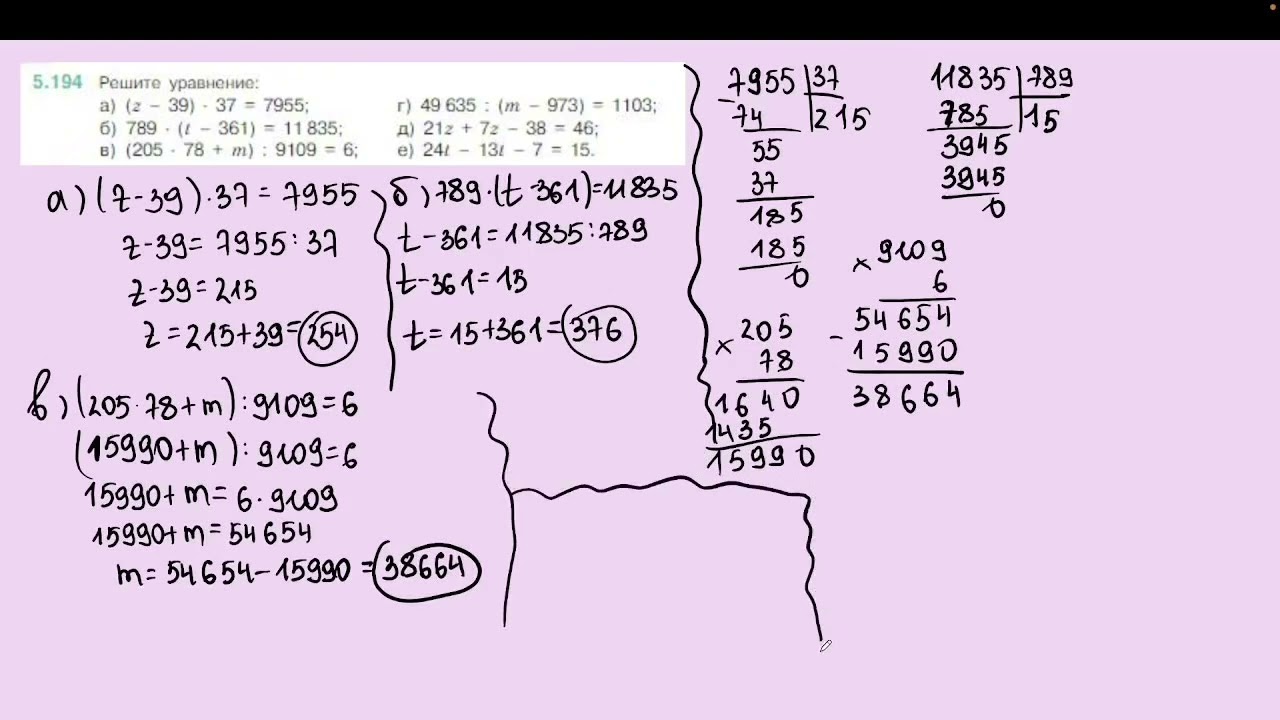 5.194 Решите уравнение:
а) (z − 39) · 37 = 7955;
б) 789 · (t − 361) = 11 835;
в) (205 · 78 + m) : 9109 = 6;
г) 49 635 : (m − 973) = 1103;
д) 21z + 7z − 38 = 46;
е) 24t − 13t − 7 = 15.
а) (z-39)·37=7955
z-39=7955:37
z-39=215
z=215+39=254
б) 789·(t-361)=11835
t-361=11835:789
t-361=15
t=15+361=376
в) (205·78+m):9109=6
(15990+m):9109=6
15990+m=6·9109
15990+m=54654
m=54654-15990=38664
-7955 37
74 215
55
37
185
185
0
11835 789
785 15
3945
3945
0
×205
78
1640
1435
15990
×9109
6
-54654
15990
38664